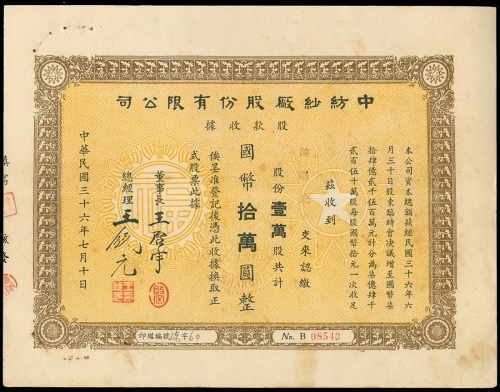 中紡紗廠股份有限公司
股款收據
本公司資本總額茲經民國三十六年六
月三十日股東臨時會決議增至國幣柒
拾肆億貳千伍百萬元計分為柒億肆千
貳百伍十萬股每股國幣拾元一次收足
茲收到
交來認繳
股份壹萬股共計
國幣拾萬圓整
俟呈准登記後憑此收據換取正
式股票此據
董事長
總經理
中華民國三十六年七月十日
印鑑編號
No. B 08543